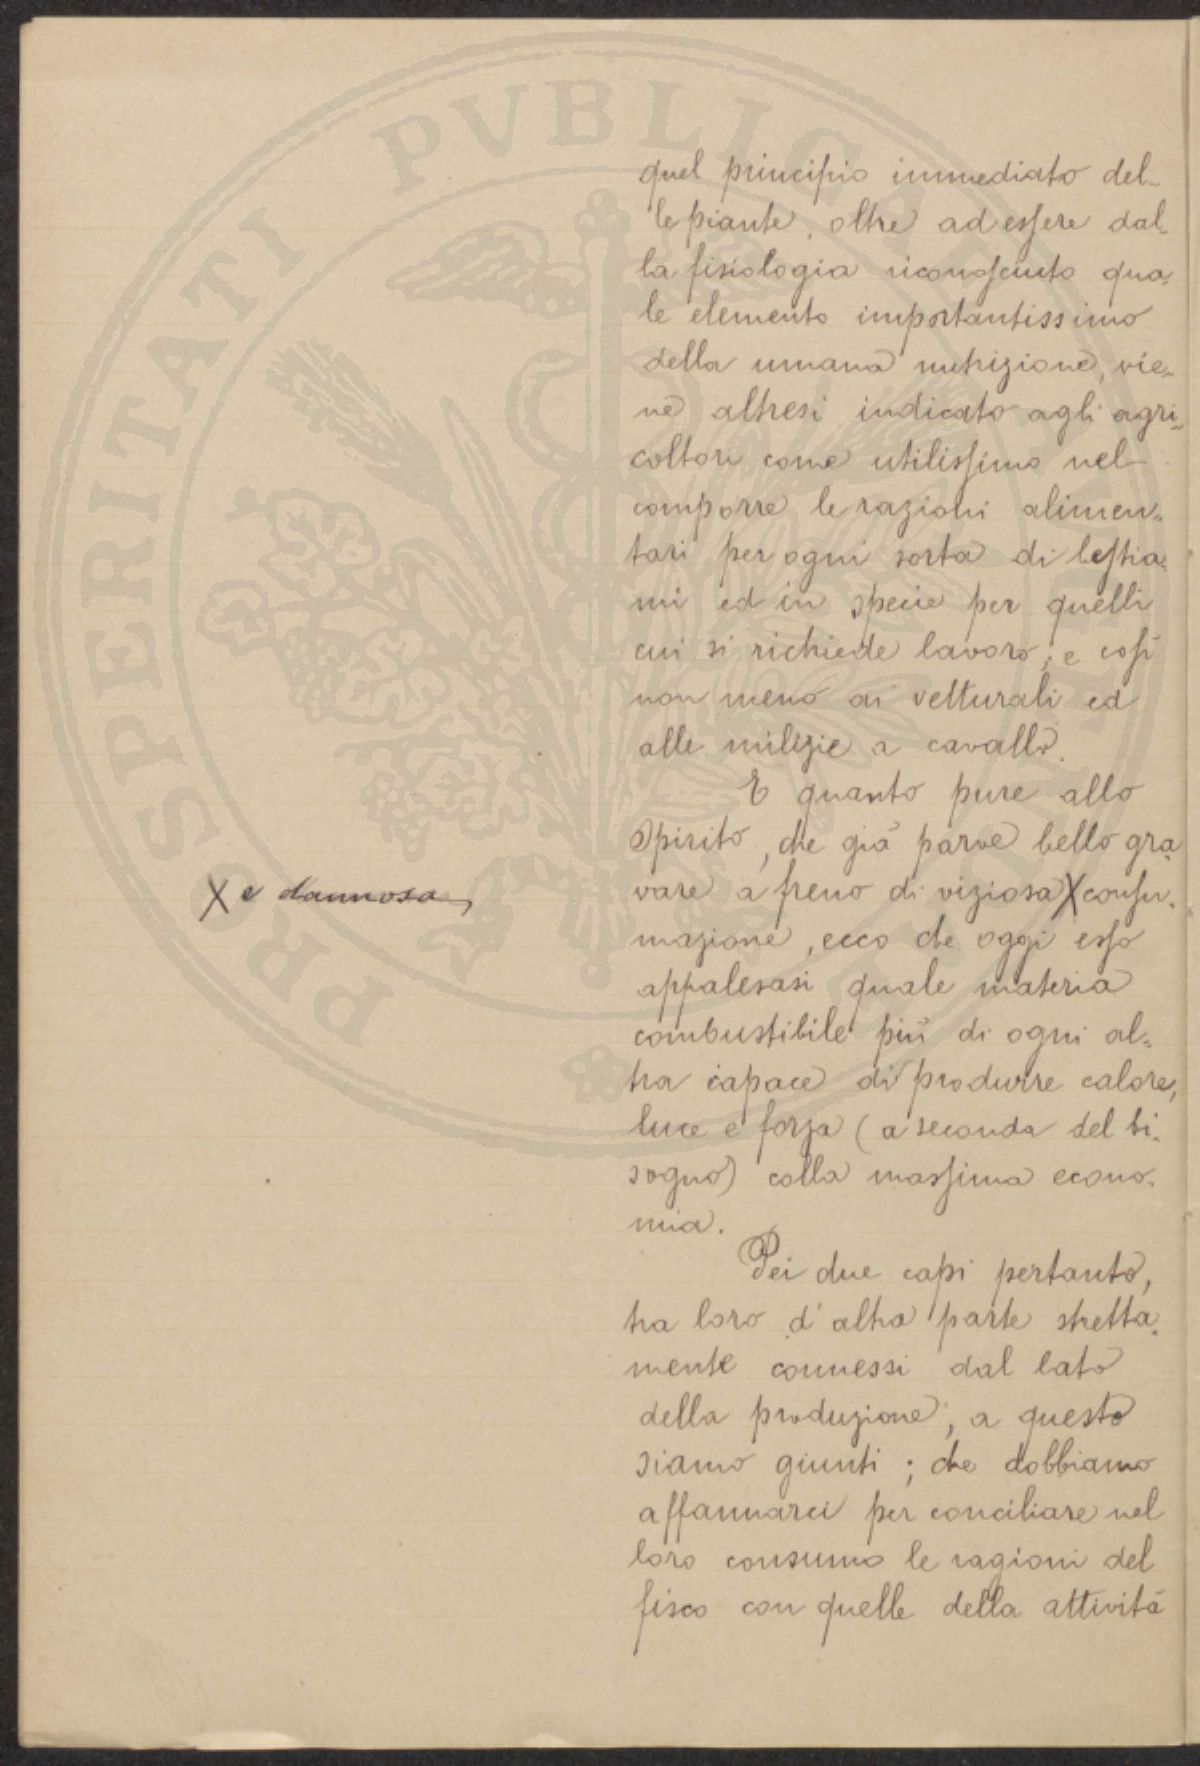 quel principio immediato del-
le piante, oltre ad essere dal-
la fisiologia riconosciuto qua-
le elemento importantissimo
della umana nutrizione, vie-
ne altresì indicato agli agri-
coltori come utilissimo nel
comporre le razioni alimen-
tari per ogni sorta di bestia-
mi ed in specie per quelli
cui si richiede lavoro; e così
non meno ai vetturali ed
alle milizie a cavallo.
E quanto pure allo
Spirito, che già parve bello gra-
vare a freno di viziosa X consu-
X e dannosa
mazione, ecco che oggi esso
appalesasi quale materia
combustibile più di ogni al-
tra capace di produrre calore,
luce e forza (a seconda del bi-
sogno) colla massima econo-
mia.
Pei due capi pertanto,
tra loro d'altra parte stretta-
mente connessi dal lato
della produzione, a questo
siamo giunti; che dobbiamo
affannarci per conciliare nel
loro consumo le ragioni del
fisco con quelle della attività
PROSPERITATI PVBLIC